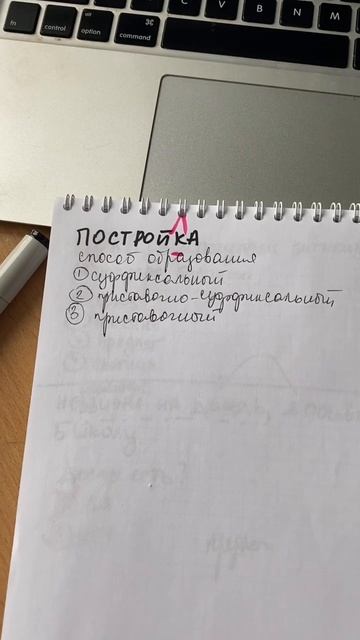 fn
control
alt
option
⌘
command
C
V
B
N
M
ПОСТРОЙКА
способ образования
① суффиксальный
② приставочно-суффиксальный
③ приставочный